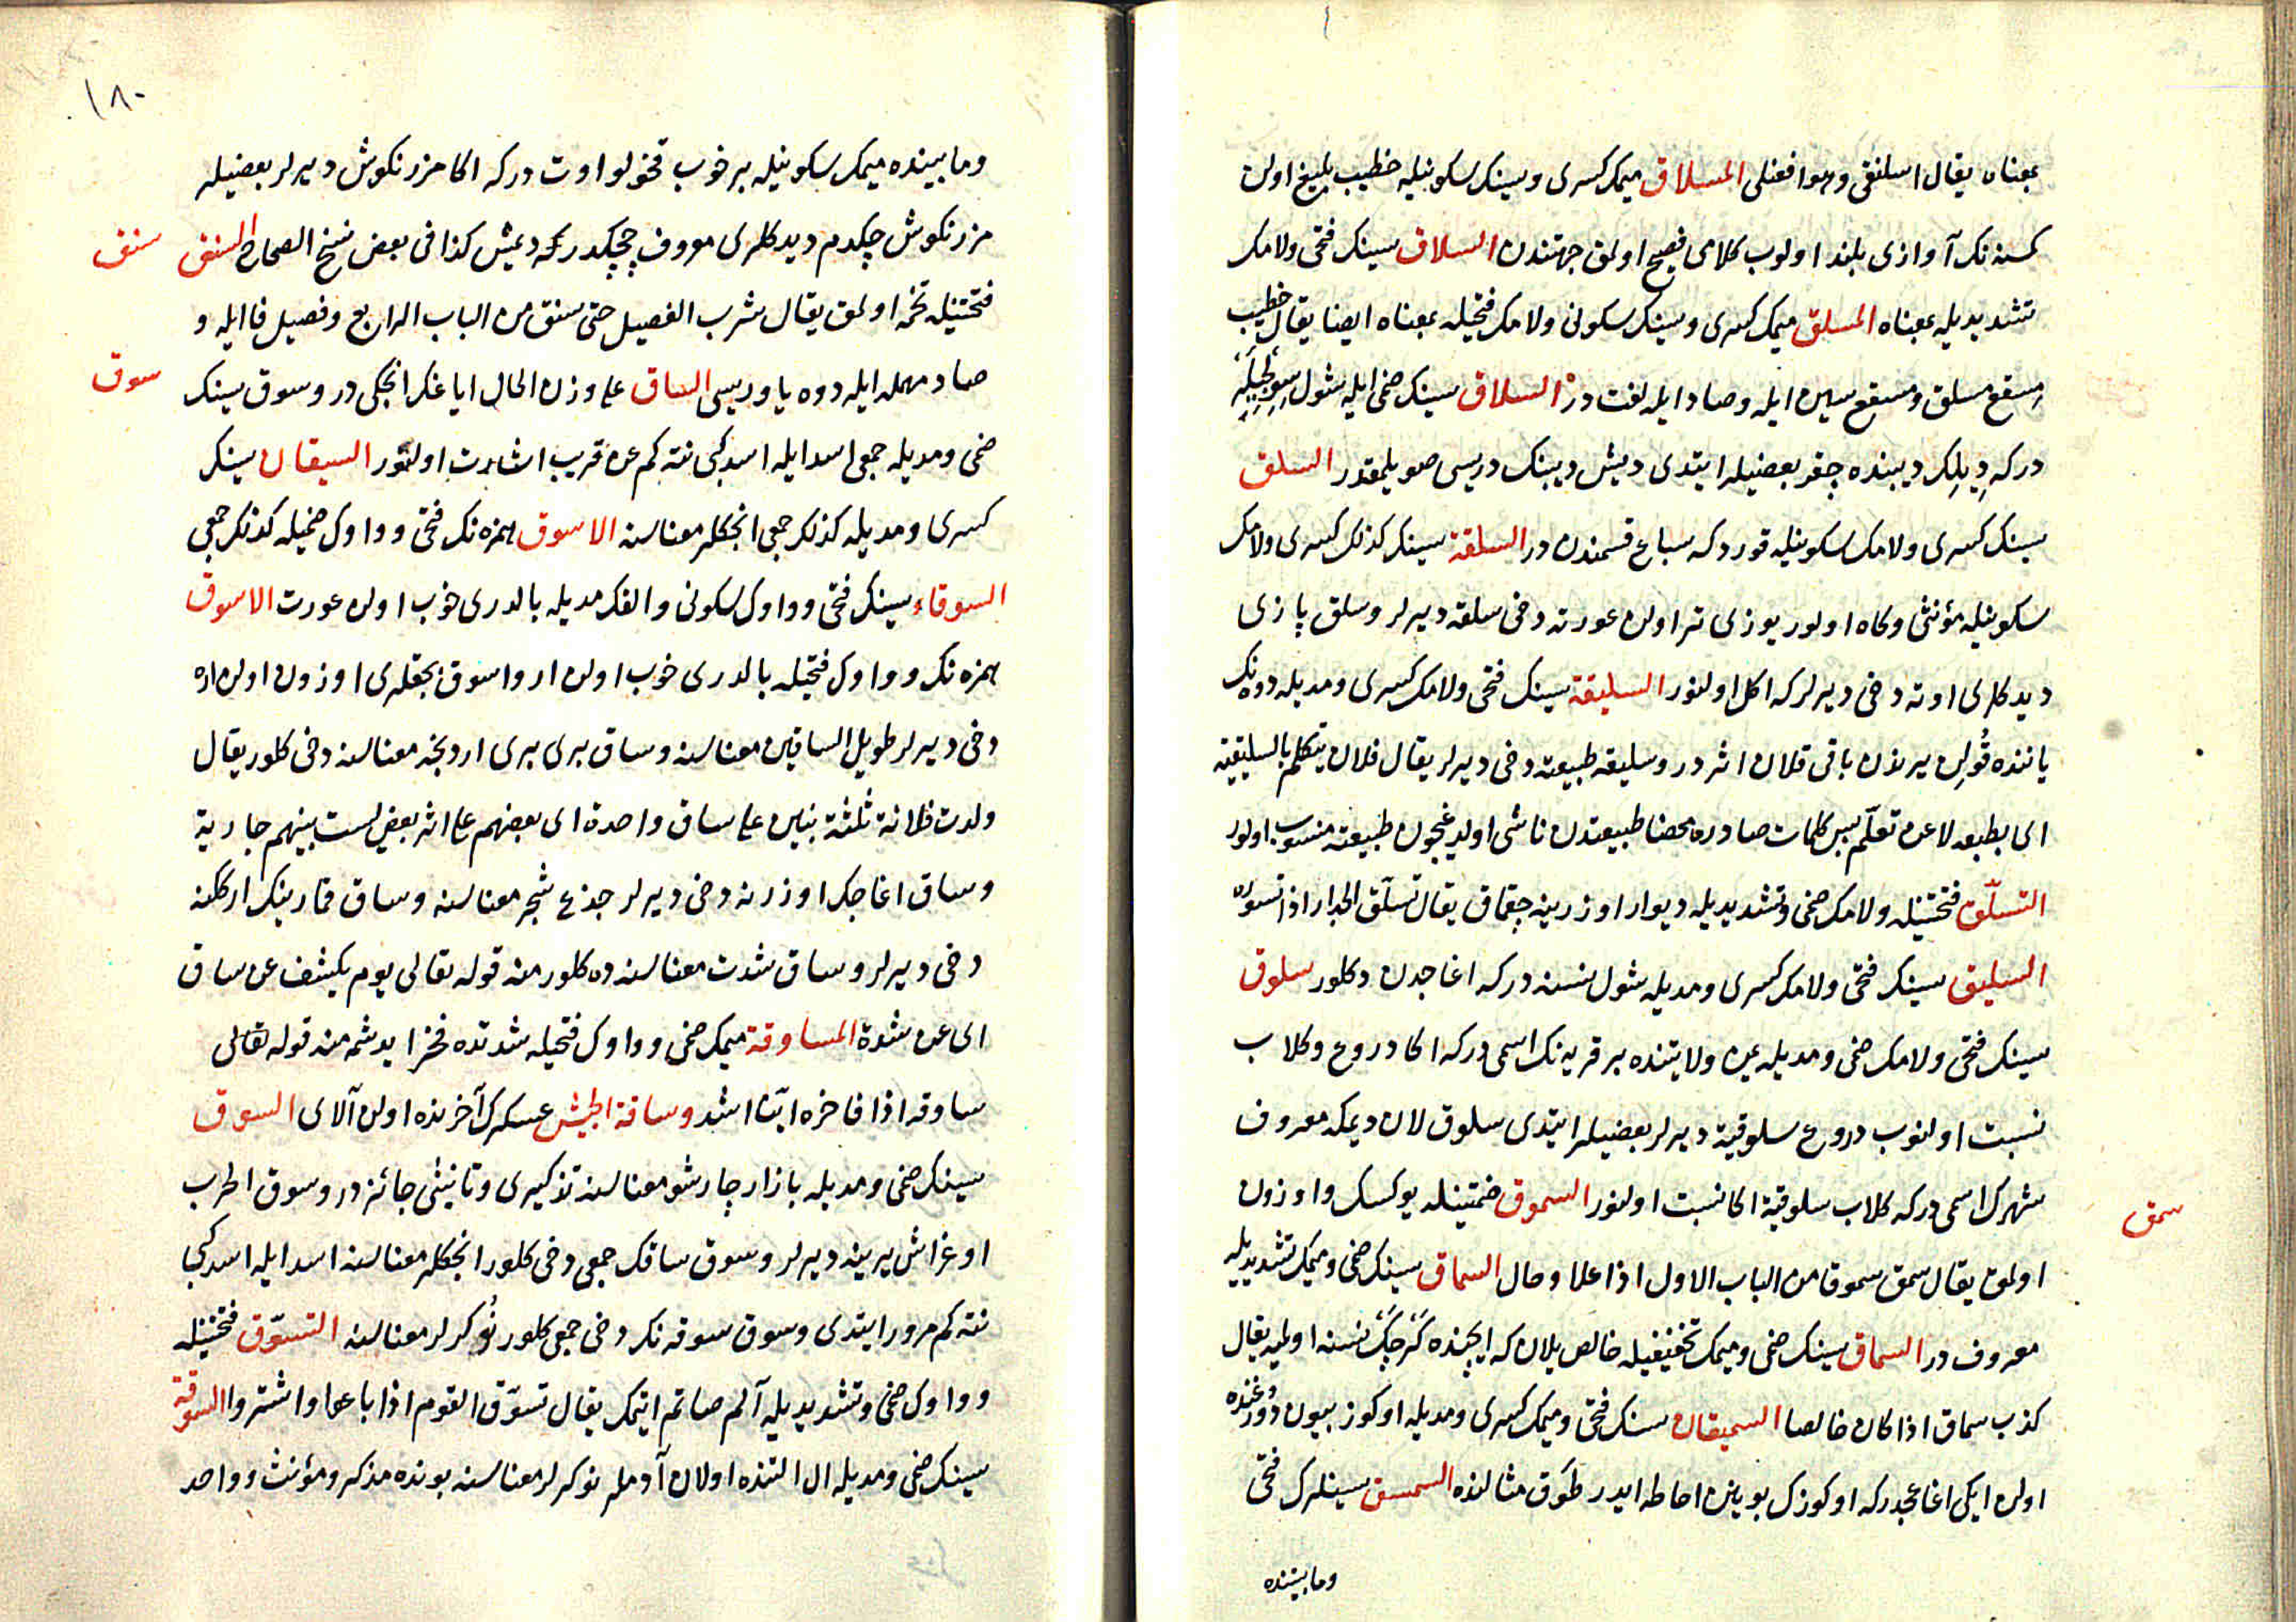 بمعناه يقال اسلنقى وهو افعنلى المسلاق ميمك كسرى وسينك سكونيله خطيب بليغ اولن
كسنه نك آوازى بلند اولوب كلامى فصيح اولمق جهتندن السلاق سينك فتحى ولامك
تشديديله بمعناه المسلق ميمك كسرى وسينك سكونى ولامك فتحيله بمعناه ايضا يقال خطيب
مسقع مسلق ومسقع سين ايله وصاد ايله لغت در السلاق سينك ضمى ايله شول سوجلجه
دركه ديلك ديبنده چقر بعضيلر ايتدى ديش ديبنك دريسى صويلمقدر السلق
سينك كسرى ولامك سكونيله قورد كه سباع قسمندن در السلقة سينك كذلك كسرى ولامك
سكونيله مؤنثى وكاه اولور يوزى تر اولن عورته دخى سلقه ديرلر وسلق پازى
ديدكلرى اوته دخى ديرلر كه اكل اولنور السليقة سينك فتحى ولامك كسرى ومديله دوه نك
ياننده قولن يرندن باقى قلان اثر در وسليقه طبيعته دخى ديرلر يقال فلان يتكلم بالسليقية
اى بطبعه لا عن تعلم پس كلمات صادره محضا طبيعتدن ناشى اولديغيچون طبيعته منسوب اولور
التسلّق فتحتيله ولامك ضمى وتشديديله ديوار اوزرينه چقماق يقال تسلّق الجدار اذا تسوره
السليق سينك فتحى ولامك كسرى ومديله شول نسنه دركه اغاجدن دكلور سلوق
سينك فتحى ولامك ضمى ومديله يمن ولايتنده بر قريه نك اسمى دركه اكا دروع وكلاب
نسبت اولنوب دروع سلوقية ديرلر بعضيلر ايتدى سلوق لان ديمكه معروف
شهرك اسمى دركه كلاب سلوقية اكا نسبت اولنور السموق ضمتيله يوكسك واوزون
سمق
اولمق يقال سمق سموقا من الباب الاول اذا علا وطال السماق سينك ضمى وميمك تشديديله
معروف در السماق سينك ضمى وميمك تخفيفيله خالص يلان كه ايچنده كرچك نسنه اولميه يقال
كذب سماق اذا كان خالصا السميقان سينك فتحى وميمك كسرى ومديله اوكوز بيون دوروغنده
اولن ايكى اغاجدركه اوكوزك بوينن احاطه ايدر طوق مثالنده السمسق سينلرك فتحى
ومابيننده
١٨٠
ومابينده ميمك سكونيله بر خوب قخولو اوت دركه اكا مرزنكوش ديرلر بعضيلر
مرزنكوش چكدم ديدكلرى معروف چچكدر ديمش كذا فى بعض نسخ الصحاح السنق
سنق
فتحتيله تخمه اولمق يقال شرب الفصيل حتى سنق من الباب الرابع وفصيل فا ايله و
صاد مهمله ايله دوه ياوريسى الساق على وزن الحال اياغك انجكى در وسوق سينك
سوق
ضمى ومديله جمعى اسد ايله اسد كبى نته كم عن قريب اشارت اولنور السيقان سينك
كسرى ومديله كذلك جمعى انجكلر معناسنه الاسوق همزه نك فتحى وواوك ضميله كذلك جمعى
السوقاء سينك فتحى وواوك سكونى والفك مديله بالدرى خوب اولن عورت الاسوق
همزه نك وواوك فتحيله بالدرى خوب اولن ار واسوق بجقلرى اوزون اولن اره
دخى ديرلر طويل الساقين معناسنه وساق برى برى اردنجه معناسنه دخى كلور يقال
ولدت فلانة ثلثة بنين على ساق واحدة اى بعضهم على اثر بعض ليست بينهم جارية
وساق اغاجك اوزرنه دخى ديرلر جذع شجر معناسنه وساق قمارينك ارككنه
دخى ديرلر وساق شدت معناسنه ده كلور منه قوله تعالى يوم يكشف عن ساق
اى عن شدة المساوقة ميمك ضمى وواوك فتحيله شدتده فخر ايدشمه منه قوله تعالى
ساوقه اذا فاخره ايّنا اشد وساقة الجيش عسكرك آخرنده اولن آلاى السوق
سينك ضمى ومديله بازار چارشو معناسنه تذكيرى وتأنيثى جائز در وسوق الحرب
اوغراش يرينه ديرلر وسوق ساقك جمعى دخى كلور انجكلر معناسنه اسد ايله اسد كبى
نته كم مرور ايتدى وسوق سوقه نك دخى جمعى كلور نوكرلر معناسنه التسوّق فتحتيله
وواوك ضمى وتشديديله آلم صاتم ايتمك يقال تسوّق القوم اذا باعوا واشتروا السوقة
سينك ضمى ومديله ال التنده اولان آدملر نوكرلر معناسنه بونده مذكر ومؤنث وواحد